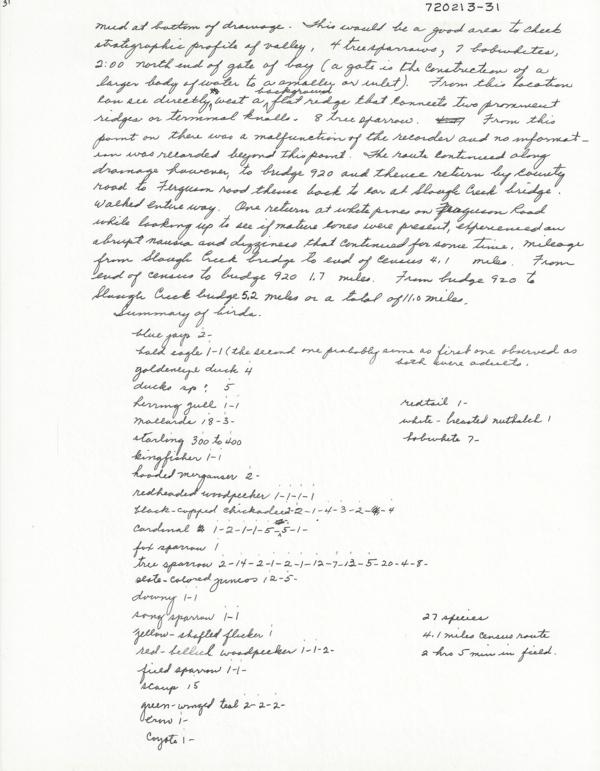 31
720213-31
mud at bottom of drainage. This would be a good area to check
stratographic profile of valley, 4 tree sparrows, 7 bobwhites,
2:00 north end of gate of bay (a gate is the construction of a
larger body of water to a smaller or inlet). From this location
can see directly to west a background flat redge that connects two prominent
ridges or terminal knolls. 8 tree sparrow. From this
point on there was a malfunction of the recorder and no informat-
ion was recorded beyond this point. The route continued along
drainage however, to bridge 920 and thence return by County
road to Ferguson road thence back to car at Slough Creek bridge.
Walked entire way. One return at white pines on Ferguson Road
while looking up to see if mature cones were present, experienced an
abrupt nausia and dizziness that continued for some time. Mileage
from Slough Creek bridge to end of census 4.1 miles. From
end of census to bridge 920 1.7 miles. From bridge 920 to
Slough Creek bridge 5.2 miles or a total of 11.0 miles.
Summary of birds.
blue jays 2-
bald eagle 1-1 (the second one probably same as first one observed as
both were adults.
goldeneye duck 4
ducks sp? 5
herring gull 1-1
redtail 1-
mallards 18-3-
white-breasted nuthatch 1
starling 300 to 400
bobwhite 7-
kingfisher 1-1
hooded merganser 2-
redheaded woodpecker 1-1-1-1
black-capped chickadee 2-2-1-4-3-2-4
cardinal 1-2-1-1-5-5-1-
fox sparrow 1
tree sparrow 2-14-2-1-2-1-12-7-13-5-20-4-8-
slate-colored juncos 12-5-
downy 1-1
song sparrow 1-1
27 species
yellow-shafted flicker 1
4.1 miles census route
red-bellied woodpecker 1-1-2-
2 hrs 5 min in field.
field sparrow 1-1-
scaup 15
green-winged teal 2-2-2-
crow 1-
Coyote 1-